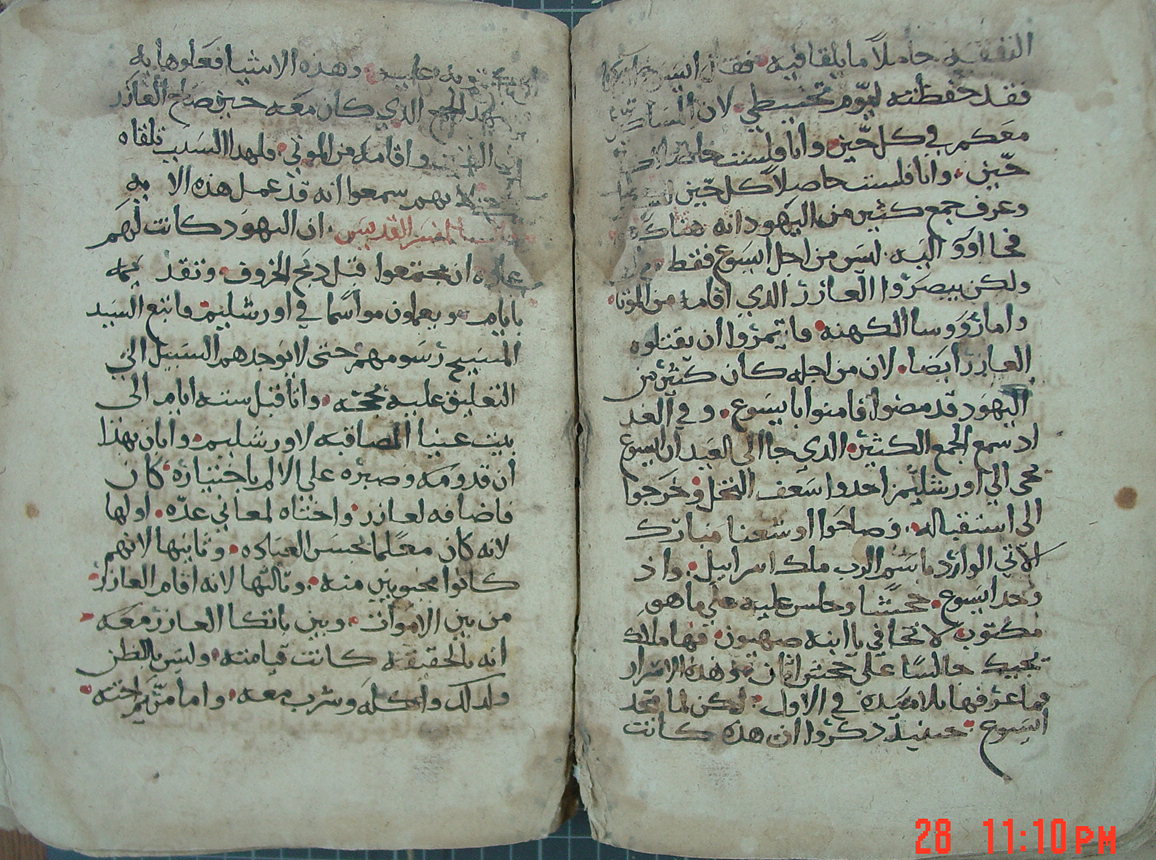 حاملاً ما يلقا فيه فقال ايسوع
فقد حفظته ليوم تحنيطي لان المساكين
معكم في كل حين وانا فلست
حين وانا فلست حاصلاً كل حين
وعرف جمع كثير من اليهود انه هناك
فجااوو اليه ليس من اجل ايسوع فقط
ولكن ليبصروا العازر الذي اقامه من الموتا
واما رووسا الكهنه فايتمروا ان يقتلوه
العازر ايضا لان من اجله كان كثير من
اليهود قد مضوا فامنوا بايسوع وفي الغد
اذ سمع الجمع الكثير الذي جا الى العيد ان ايسوع
يجي الي اورشليم اخدوا سعف النخل وخرجوا
الى استقباله وصاحوا اوشعنا مبارك
الاتي الوارد باسم الرب ملك اسراييل واذ
وجد ايسوع جحشا وجلس عليه علي ما هو
مكتوب لا تخافي يا ابنه صهيون فها ملك
يجيك جالسًا على جحش اتان وهذه الاسرار
فما عرفها تلاميده في الاول لكن لما تمجد
ايسوع حينيد دكروا ان هده كانت
عليه وهذه الاشيا فعلوها به
الجمع الذي كان معه حين صاح العازر
واقامه من الموتي فلهدا السبب تلقاه
لانهم سمعوا انه قد عمل هذه الايه
القديس ان اليهود كانت لهم
عاده ان يجتمعوا قبل دبح الخروف
بايام ويعملون مواسما في اورشليم فاتبع السيد
المسيح رسومهم حتى لا يوجدهم السبيل الي
التعليق عليه بحجه واتا قبل سته ايام الى
بيت عنيا المصاقبه لاورشليم وابان بهذا
ان قدومه وصبره على الالم باختياره كان
فاضافه لعازر واختاه لمعاني عده اولها
لانه كان معلما لحسن العباده وثانيها لانهم
كانوا محبوبين منه وثالثها لانه اقام العازر
من بين الاموات وبين باتكا العازر معه
انه بالحقيقه كانت قيامته وليس بالظن
ولدلك واكله وشرب معه واما مريم اخته
28 11:10 PM